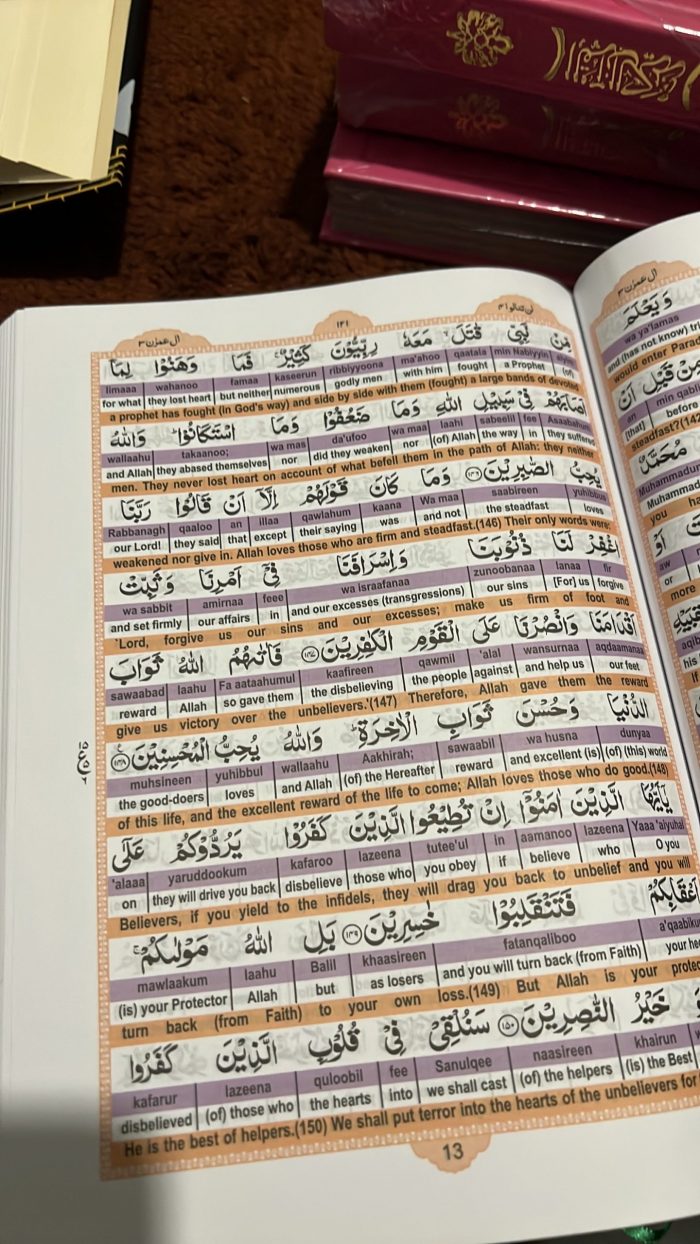 لن تنالوا ٤ ١٣١ آل عمرٰن ٣
مِّنۡ نَّبِىٍّ قٰتَلَ ۙ مَعَهٗ رِبِّيُّوۡنَ كَثِيۡرٌ ۚ فَمَا وَهَنُوۡا لِمَاۤ
limaaa wahanoo famaa kaseerun ribbiyyoona ma'ahoo qaatala min Nabiyyin
for what they lost heart but neither numerous godly men with him fought a Prophet (of)
a prophet has fought (in God's way) and side by side with them (fought) a large bands of devoted
اَصَابَهُمۡ فِىۡ سَبِيۡلِ اللّٰهِ وَمَا ضَعُفُوۡا وَمَا اسۡتَكَانُوۡا ؕ وَاللّٰهُ
wallaahu takaanoo; wa mas da'ufoo wa maa laahi sabeelil fee Asaabahum
and Allah they abased themselves nor did they weaken nor (of) Allah the way in they suffered
men. They never lost heart on account of what befell them in the path of Allah: they neither
يُحِبُّ الصّٰبِرِيۡنَ ﴿۱۴۶﴾ وَمَا كَانَ قَوۡلَهُمۡ اِلَّاۤ اَنۡ قَالُوۡا رَبَّنَا
Rabbanagh qaaloo an illaa qawlahum kaana Wa maa saabireen yuhibbus
our Lord! they said that except their saying was and not the steadfast loves
weakened nor give in. Allah loves those who are firm and steadfast.(146) Their only words were:
اغۡفِرۡ لَنَا ذُنُوۡبَنَا وَاِسۡرَافَنَا فِىۡۤ اَمۡرِنَا وَثَبِّتۡ
wa sabbit amirnaa feee wa israafanaa zunoobanaa lanaa fir
and set firmly our affairs in and our excesses (transgressions) our sins [For] us forgive
'Lord, forgive us our sins and our excesses; make us firm of foot and
اَقۡدَامَنَا وَانۡصُرۡنَا عَلَى الۡقَوۡمِ الۡكٰفِرِيۡنَ ﴿۱۴۷﴾ فَاٰتٰٮهُمُ اللّٰهُ ثَوَابَ
sawaabad laahu Fa aataahumul kaafireen qawmil 'alal wansurnaa aqdaamanaa
reward Allah so gave them the disbelieving the people against and help us our feet
give us victory over the unbelievers.'(147) Therefore, Allah gave them the reward
الدُّنۡيَا وَحُسۡنَ ثَوَابِ الۡاٰخِرَةِ ؕ وَاللّٰهُ يُحِبُّ الۡمُحۡسِنِيۡنَ ﴿۱۴۸﴾
muhsineen yuhibbul wallaahu Aakhirah; sawaabil wa husna dunyaa
the good-doers loves and Allah (of) the Hereafter reward and excellent (is) (of) (this) world
of this life, and the excellent reward of the life to come; Allah loves those who do good.(148)
يٰۤاَيُّهَا الَّذِيۡنَ اٰمَنُوۡۤا اِنۡ تُطِيۡعُوا الَّذِيۡنَ كَفَرُوۡا يَرُدُّوۡكُمۡ عَلٰٓى
'alaaa yaruddookum kafaroo lazeena tutee'ul in aamanoo lazeena Yaaa 'aiyuhal
on they will drive you back disbelieve those who you obey if believe who O you
Believers, if you yield to the infidels, they will drag you back to unbelief and you will
اَعۡقَابِكُمۡ فَتَنۡقَلِبُوۡا خٰسِرِيۡنَ ﴿۱۴۹﴾ بَلِ اللّٰهُ مَوۡلٰٮكُمۡ ۚ
mawlaakum laahu Balil khaasireen fatanqaliboo
(is) your Protector Allah but as losers and you will turn back (from Faith)
turn back (from Faith) to your own loss.(149) But Allah is your
خَيۡرُ النّٰصِرِيۡنَ ﴿۱۵۰﴾ سَنُلۡقِىۡ فِىۡ قُلُوۡبِ الَّذِيۡنَ كَفَرُوۡا
kafarur lazeena quloobil fee Sanulqee naasireen khairun
disbelieved (of) those who the hearts into we shall cast (of) the helpers (is) the Best
He is the best of helpers.(150) We shall put terror into the hearts of the unbelievers for
13
آل عمرٰن ٣
وَيَعۡلَمَ
wa ya'lamas
and (has not know)
would enter
مِنۡ قَبۡلِ اَنۡ
min
[that] before
steadfast?(142)
مُحَمَّدٌ
Muhammadun
Muhammad
you
اَوۡ
aw
or
more
his